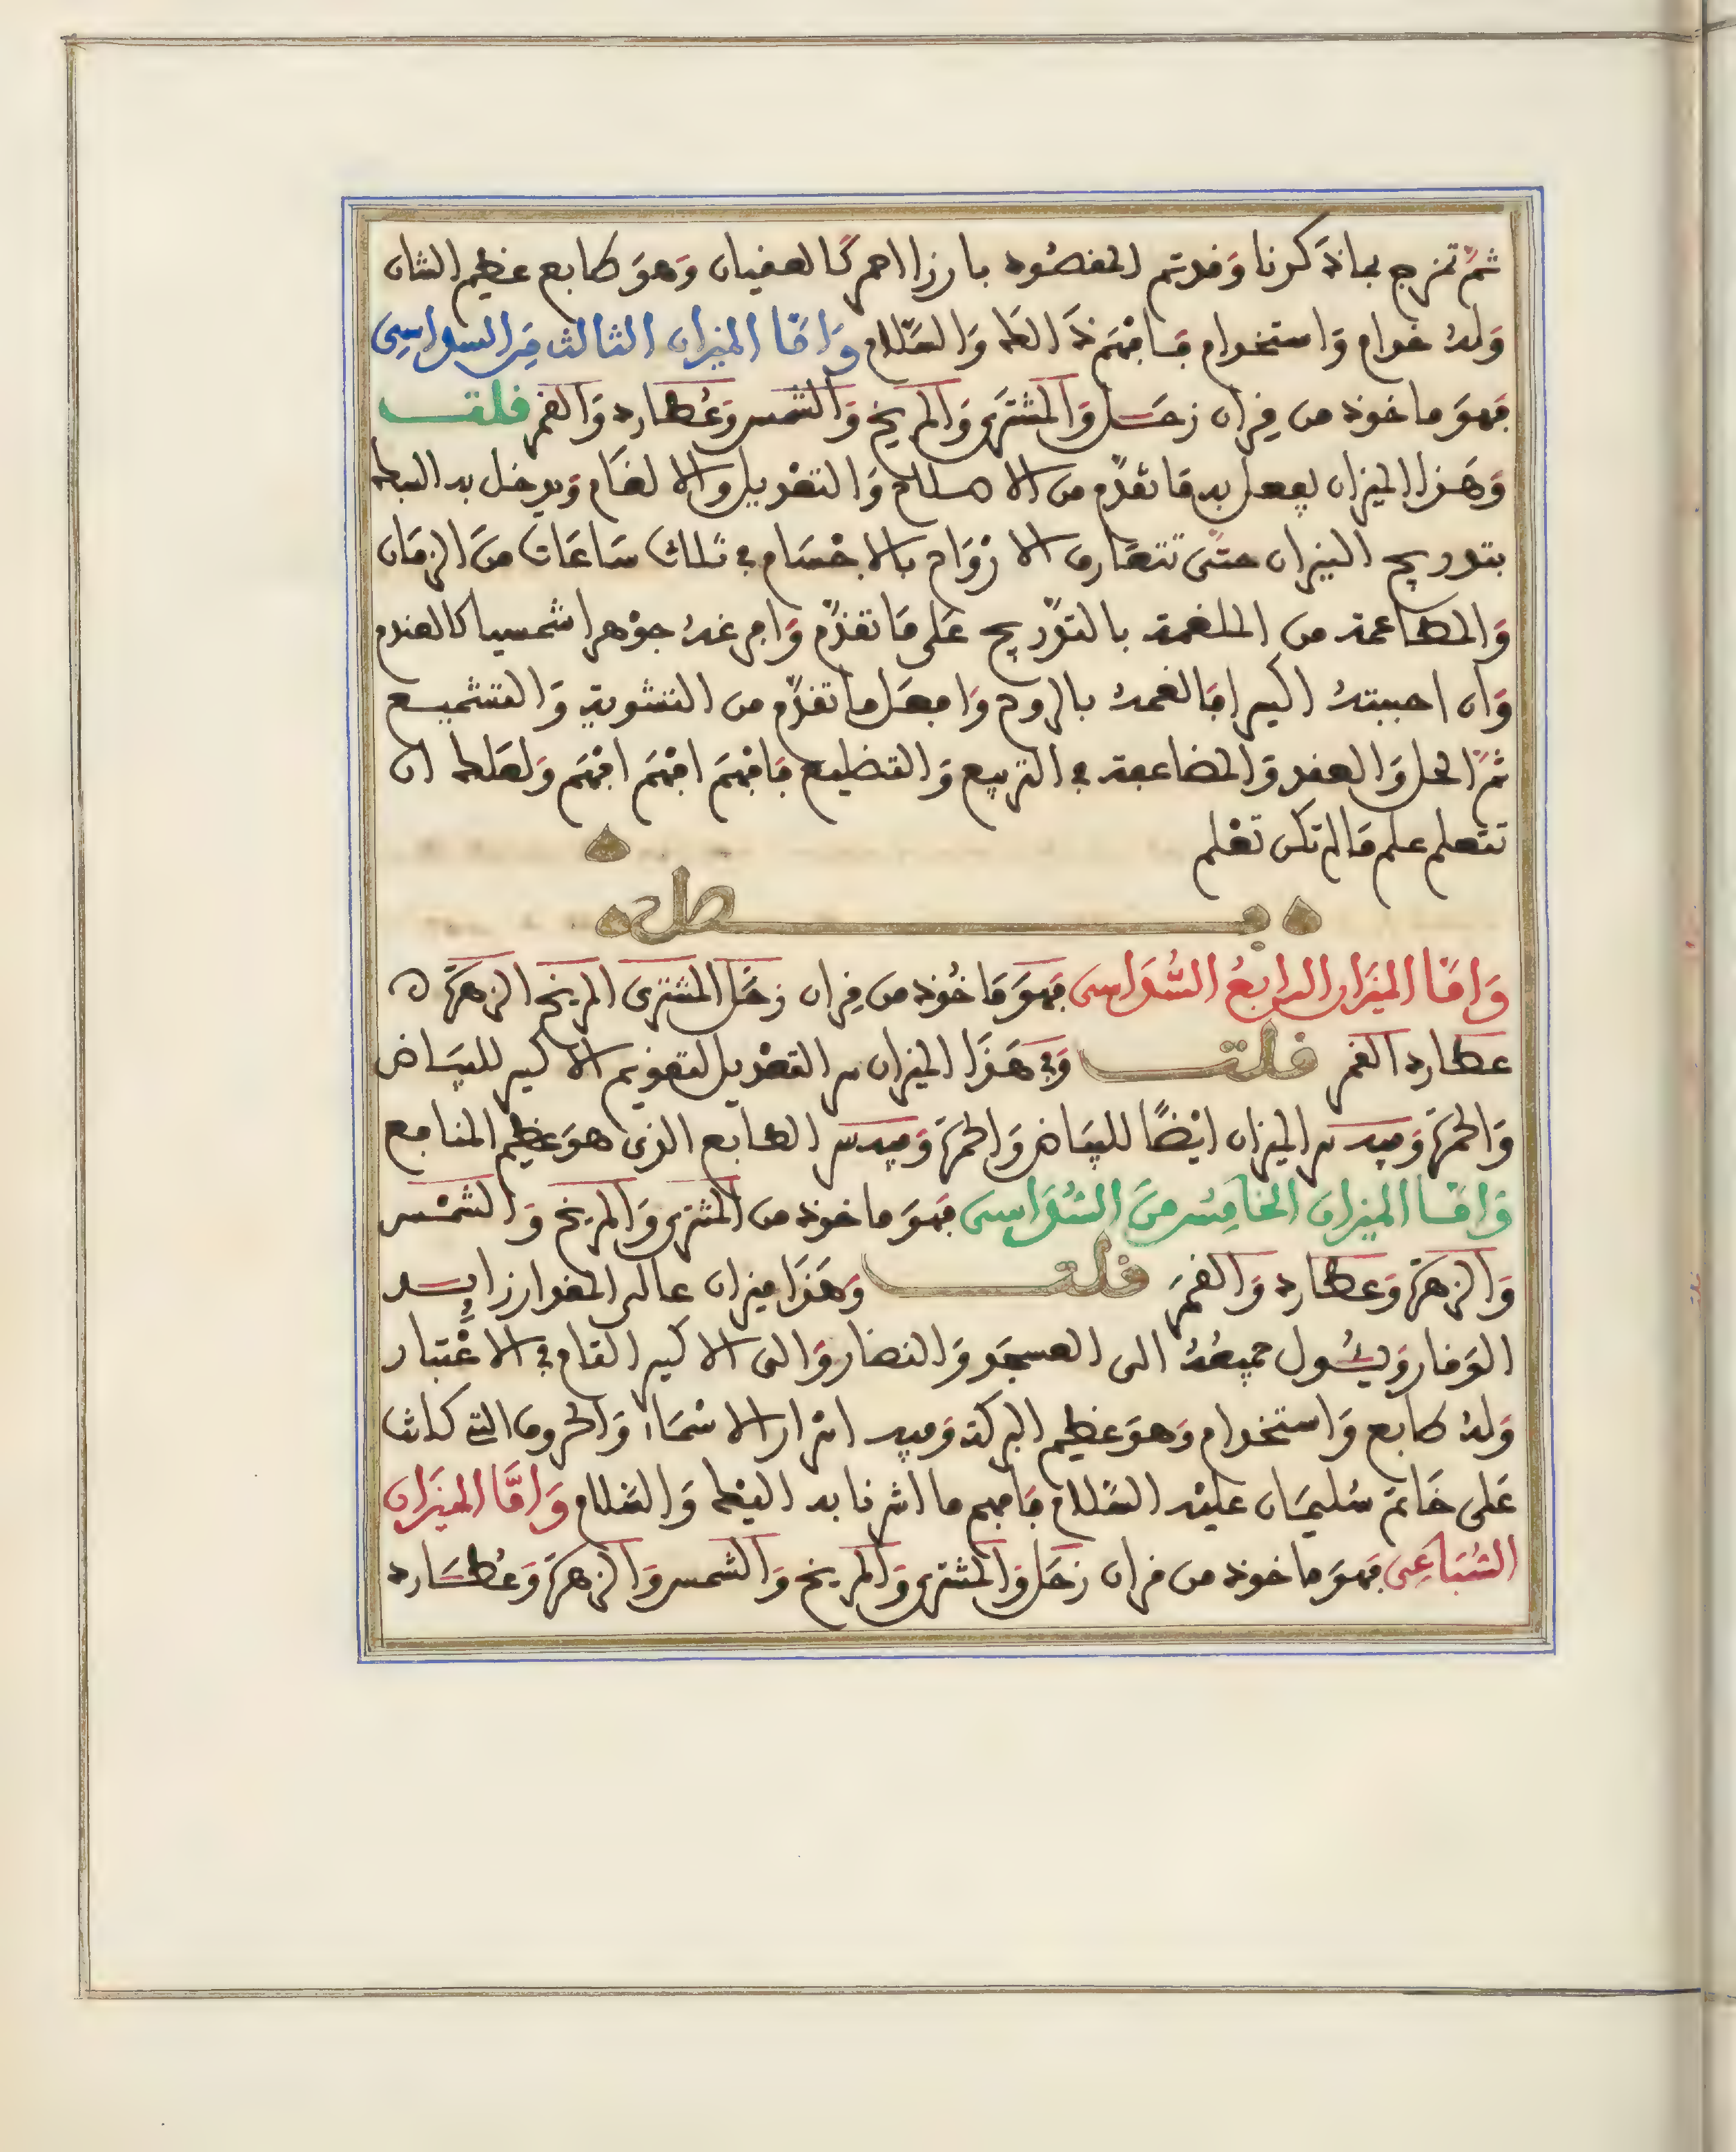 ثمّ تمزج بماذكرنا وقد تم المقصود بارزا احمر كالعقيان وهو طابع عظيم الشان
وله خدام واستخدام فافهم ذالك والسّلام وامّا الميزان الثالث من السداسى
فهو ماخوذ من قران زحل والمشترى والمريخ والشمس وعطارد والقمر قلت
وهذا الميزان يفعل به ما تقدّم من الاصلاح والتعديل والالغام ويدخل به البطه
بتدريج النيران حتى تتعارف الارواح بالاجسام فى ثلاث ساعات من الزمان
والمطاعمة من الملغمة بالتدريج على ما تقدّم وافرغه جوهرا شمسيا كالعندم
وان احببته اكسيرا فالغمه بالروح وافعل ما تقدّم من التشوية والتشميع
ثمّ الحل والعقد والمضاعفة فى التربيع والتضليع فافهم افهم افهم ولعلك ان
تتعلم علم ما لم تكن تعلم
فصل
وامّا الميزان الرابع السّداسى فهو ماخوذ من قران زحل المشترى المريخ الزهرة
عطارد القمر قلت وفى هذا الميزان سر التعديل لتقويم الاكسير للبياض
والحمرة وفيه سر الميزان ايضًا للبياض والحمرة وفيه سر الطابع الذى هو عظيم المنافع
وامّا الميزان الخامس من السّداسى فهو ماخوذ من المشترى والمريخ والشمس
والزهرة وعطارد والقمر قلت وهذا ميزان عالى المقدار زايد
الوقار ويئول جميعه الى العسجد والنضار والى الاكسير التام فى الاعتبار
وله طابع واستخدام وهو عظيم البركة وفيه اسرار الاسماء والحروف التى كانت
على خاتم سليمان عليه السّلام فافهم ما اشرنا به اليك والسّلام وامّا الميزان
السّباعى فهو ماخوذ من قران زحل والمشترى والمريخ والشمس والزهرة وعطارد